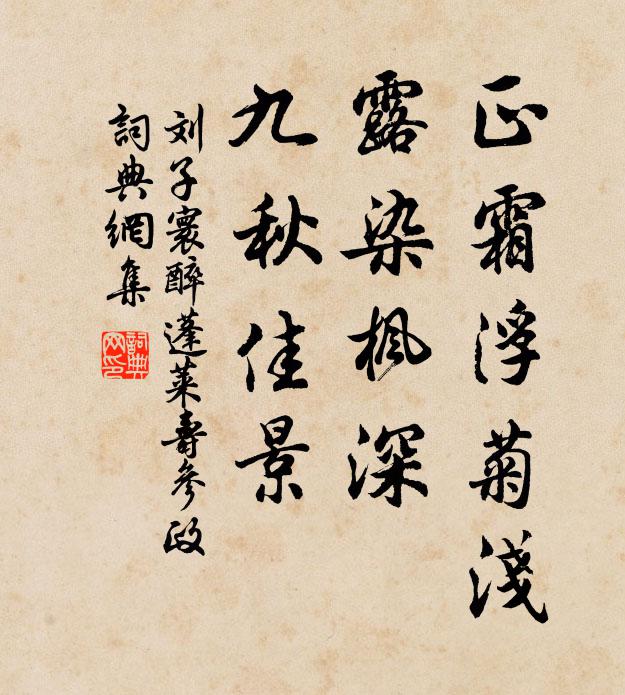 正霜浮菊淺
露染楓深
九秋佳景
刘子寰醉蓬萊壽參政
詞典網集
詞典网印